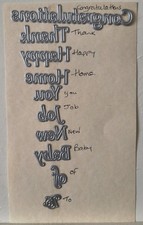 Congratulations
Congratulations
Thank Thank
Happy Happy
Home Home
You you
Job Job
New New
Baby Baby
of
To